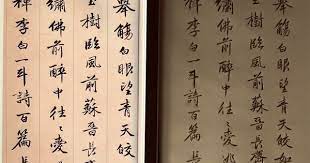 舉觴白眼望青天皎
玉樹臨風前蘇晉長
繡佛前醉中往々愛
禪李白一斗詩百篇
舉觴白眼望青天皎
玉樹臨風前蘇晉長
繡佛前醉中往々愛
禪李白一斗詩百篇長